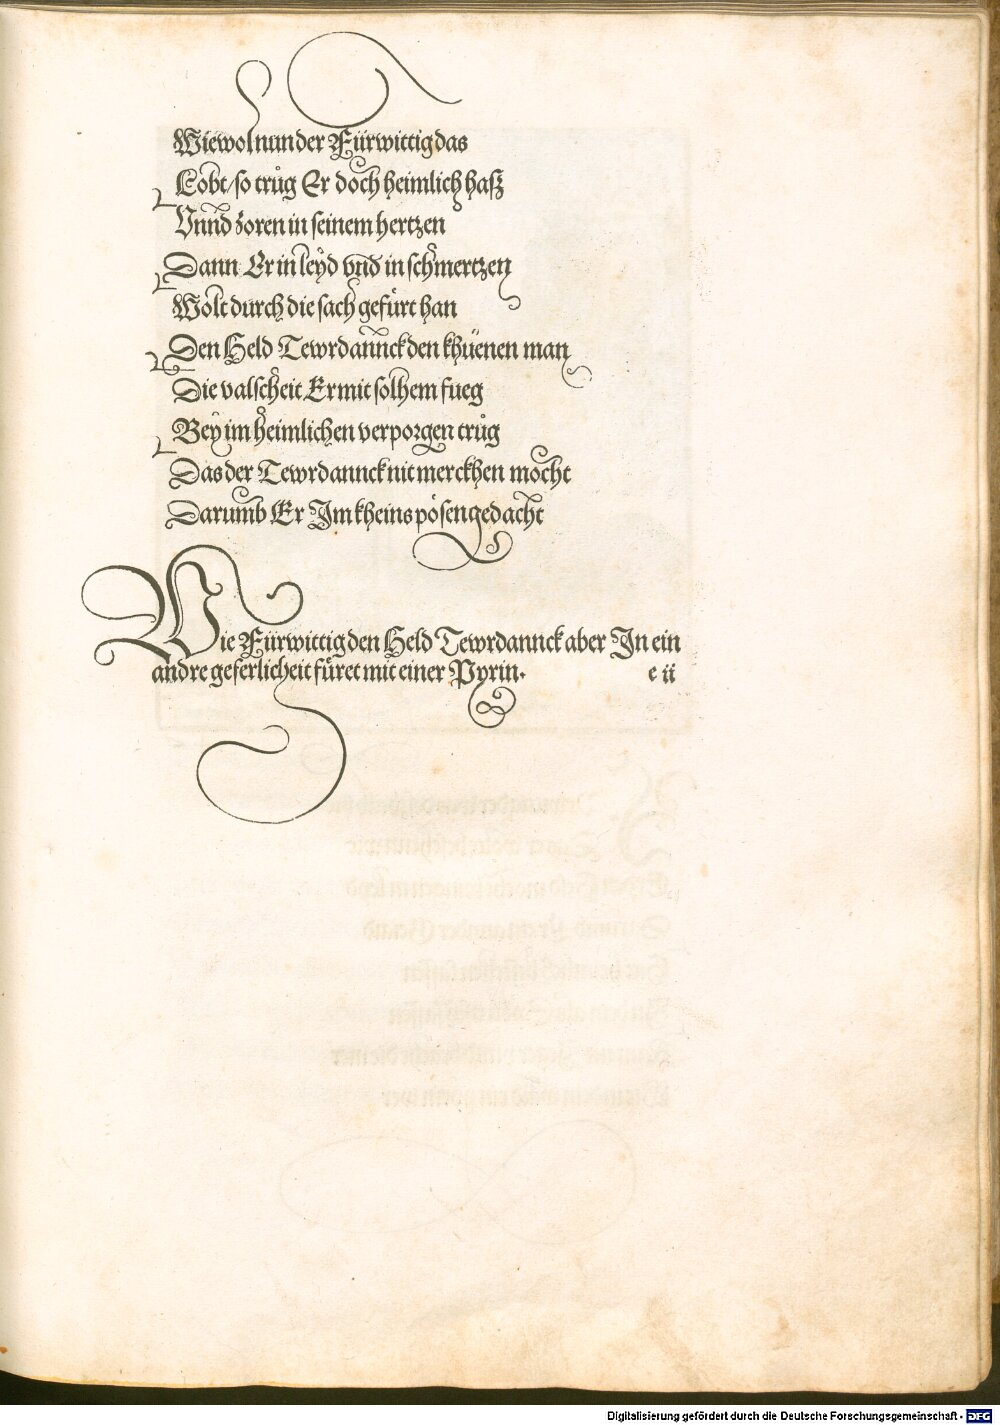 Wiewol nun der Fürwittig das
Lobt/ so trůg Er doch heimlich haß
Vnnd zoren in seinem hertzen
Dann Er in leyd vnd in schmertzen
Wolt durch die sach gefürt han
Den Held Tewrdannck den khüenen man
Die valscheit Er mit solhem fueg
Bey im heimlichen verporgen trůg
Das der Tewrdannck nit merckhen mocht
Darumb Er Im kheins pösen gedacht
Wie Fürwittig den Held Tewrdannck aber In ein
andre geferlicheit füret mit einer Pyrin.
e ii
Digitalisierung gefördert durch die Deutsche Forschungsgemeinschaft - DFG